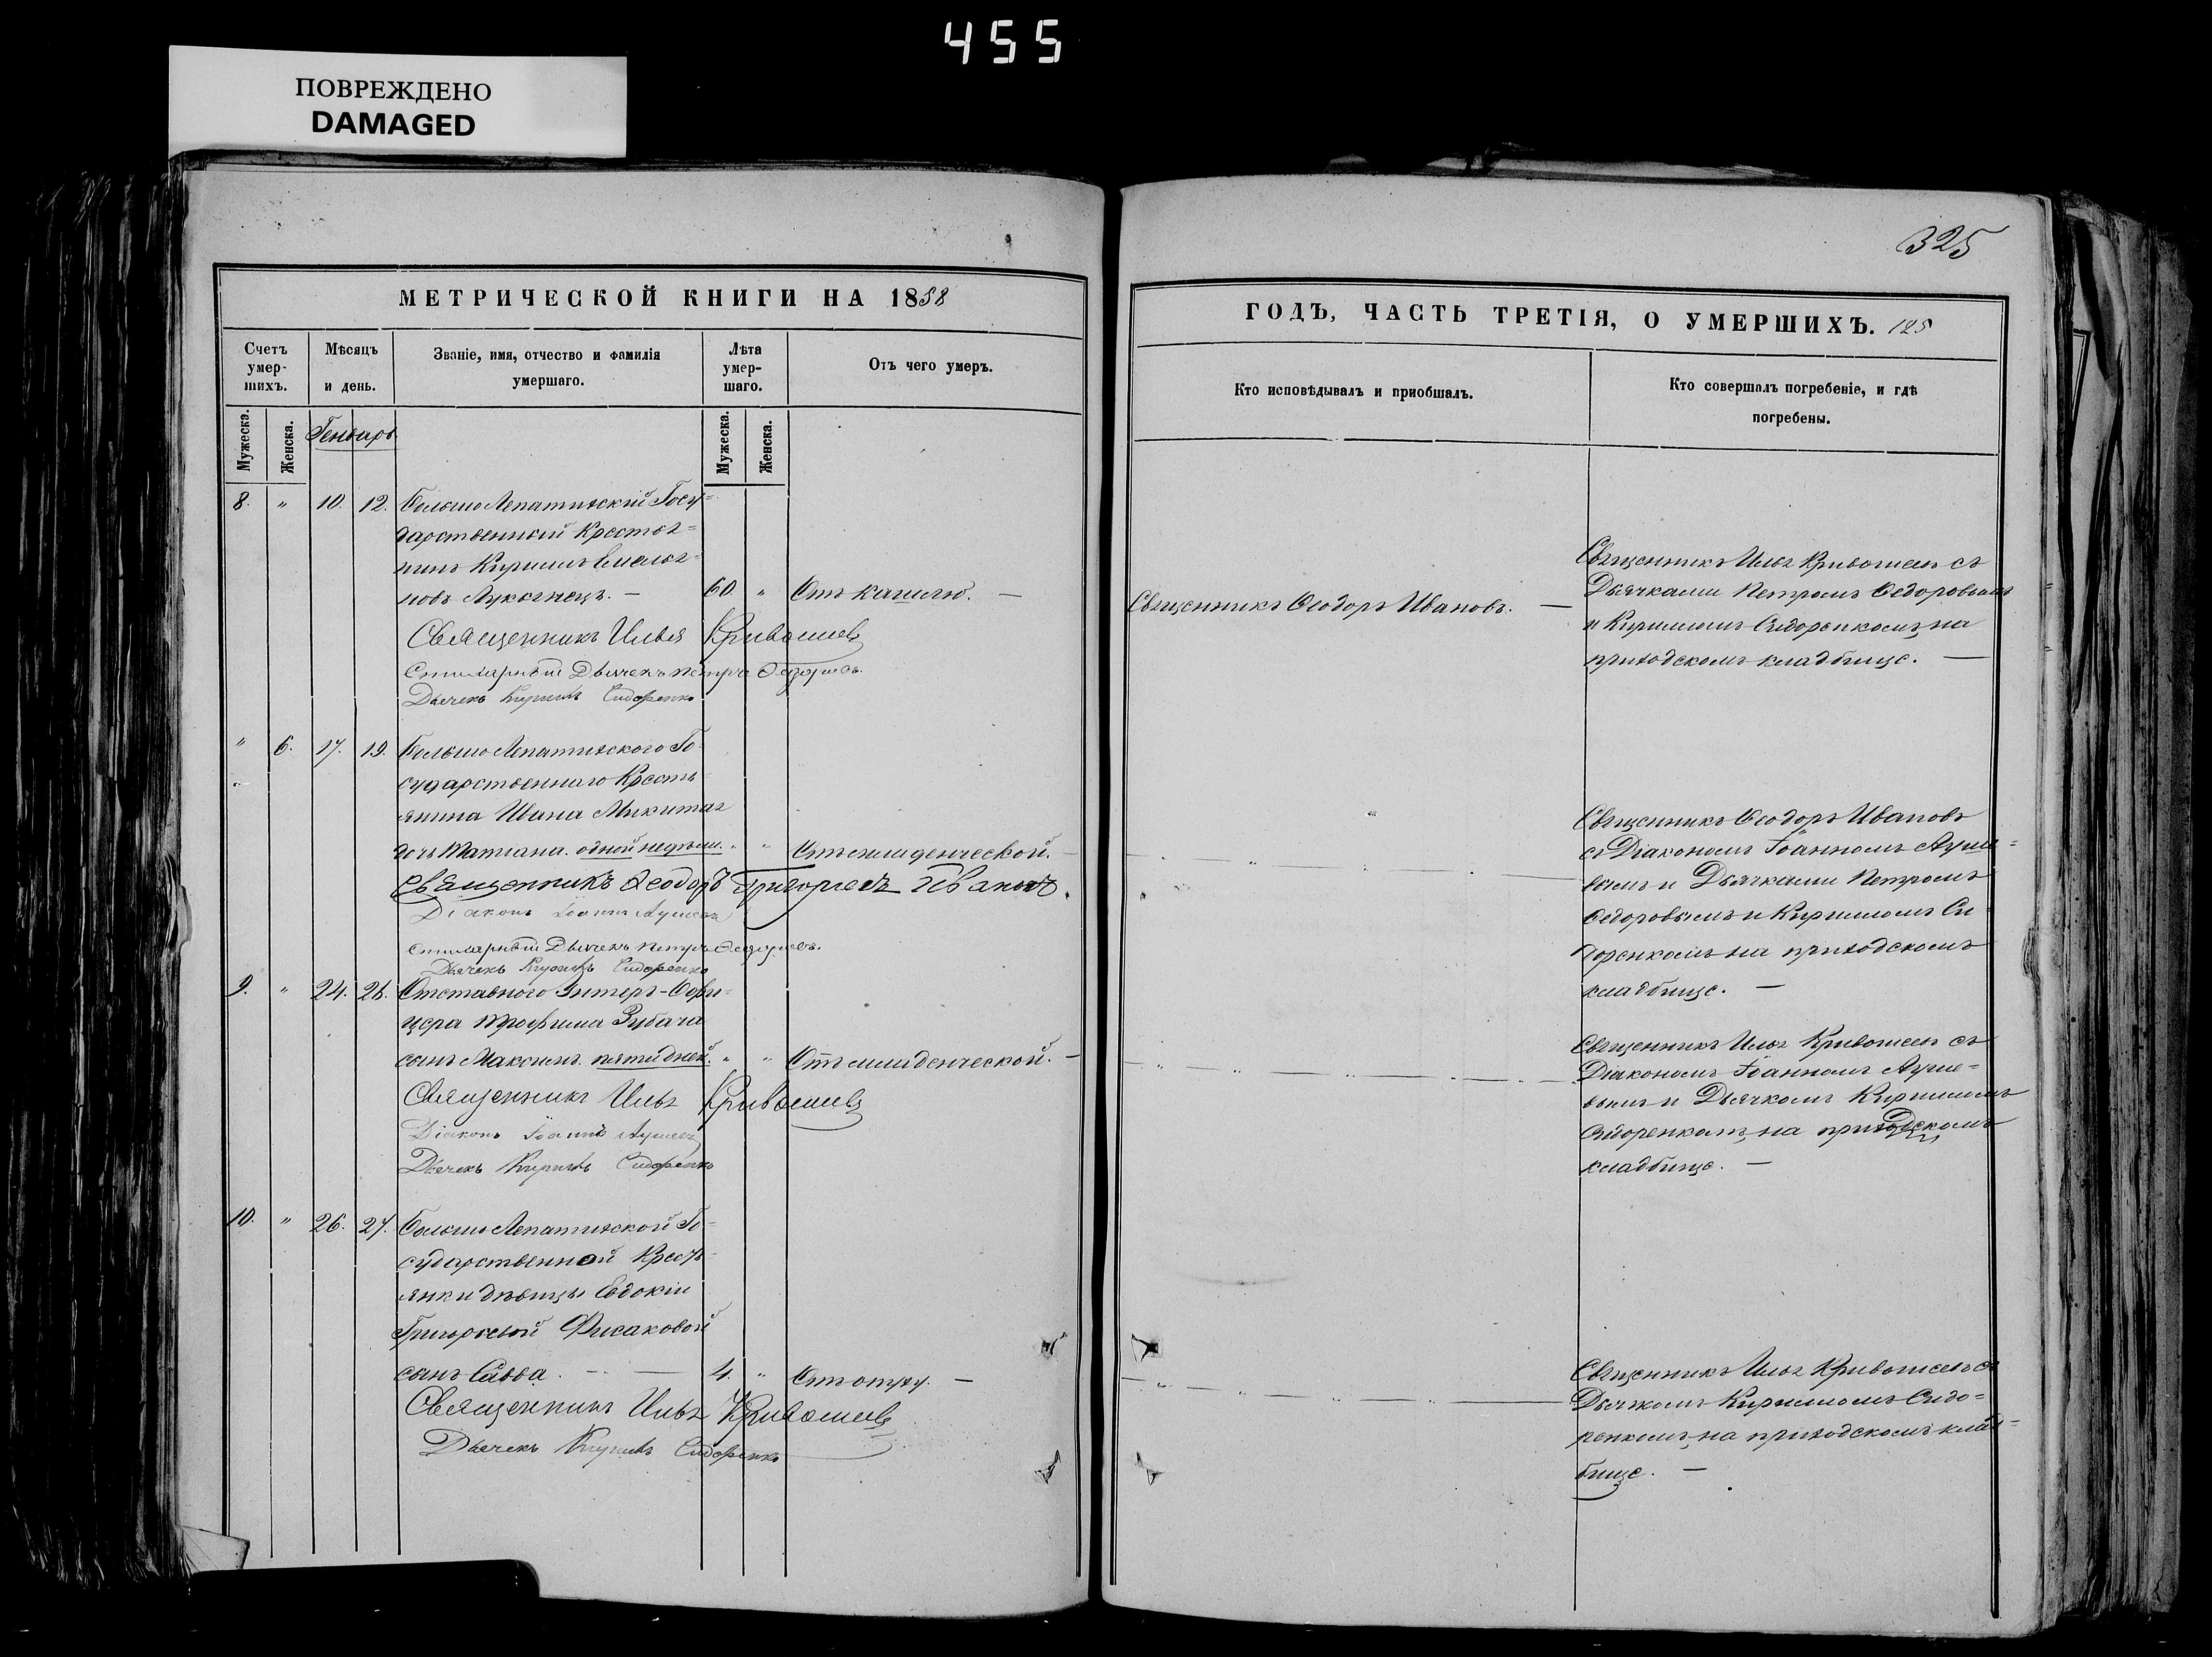 455
ПОВРЕЖДЕНО
DAMAGED
325
МЕТРИЧЕСКОЙ КНИГИ НА 1858
ГОДЪ, ЧАСТЬ ТРЕТІЯ, О УМЕРШИХЪ. 125
Счетъ умер-шихъ.
Мѣсяцъ и день.
Званіе, имя, отчество и фамилія умершаго.
Лѣта умер-шаго.
Отъ чего умеръ.
Кто исповѣдывалъ и приобшалъ.
Кто совершалъ погребеніе, и гдѣ погребены.
Мужеска.
Женска.
Генварь
Мужеска.
Женска.
8. " 10. 12. Большо Лепатихскій Госу=
дарственный Крестья=
нинъ Кирилъ Емелья=
новъ Лукьянецъ. — 60. " Отъ кашлю. —
Священникъ Илья Кривошеевъ
Дьячекъ Петръ Федоровъ.
Дьячекъ Кирилъ Сидоренко
Священникъ Ѳеодоръ Ивановъ. —
Священникъ Илья Кривошеевъ съ
Дьячками Петромъ Федоровымъ
и Кириломъ Сидоренкомъ, на
приходскомъ кладбище. —
" 6. 17. 19. Большо Лепатихского Го=
сударственнаго Кресть=
янина Ивана Микитая
дочь Татіана. одной недѣли. " " Отъ младенческой. —
Священникъ Ѳеодоръ Григорьевъ Ивановъ.
Діаконъ Іоаннъ
Дьячекъ Петръ Федоровъ.
Дьячекъ Кирилъ Сидоренко
Священникъ Ѳеодоръ Ивановъ
съ Діакономъ Іоанномъ
вымъ и Дьячками Петромъ
Федоровымъ и Кириломъ Си=
доренкомъ на приходскомъ
кладбище. —
9. " 24. 26. Отставного Унтеръ-Офи=
цера Трофима Зубача
сынъ Максимъ. пяти дней. " " Отъ младенческой. —
Священникъ Илья Кривошеевъ
Діаконъ Іоаннъ
Дьячекъ Кирилъ Сидоренко
Священникъ Илья Кривошеевъ съ
Діакономъ Іоанномъ
вымъ и Дьячкомъ Кириломъ
Сидоренкомъ, на приходскомъ
кладбище. —
10. " 26. 27. Большо Лепатихской Го=
сударственной Кресть=
янки дѣвицы Евдокіи
Григорьевой Фисаковой
сынъ Савва. — 4. " Отъ опуху. —
Священникъ Илья Кривошеевъ
Дьячекъ Кирилъ Сидоренко
Священникъ Илья Кривошеевъ съ
Дьячкомъ Кириломъ Сидо=
ренкомъ, на приходскомъ клад=
бище. —